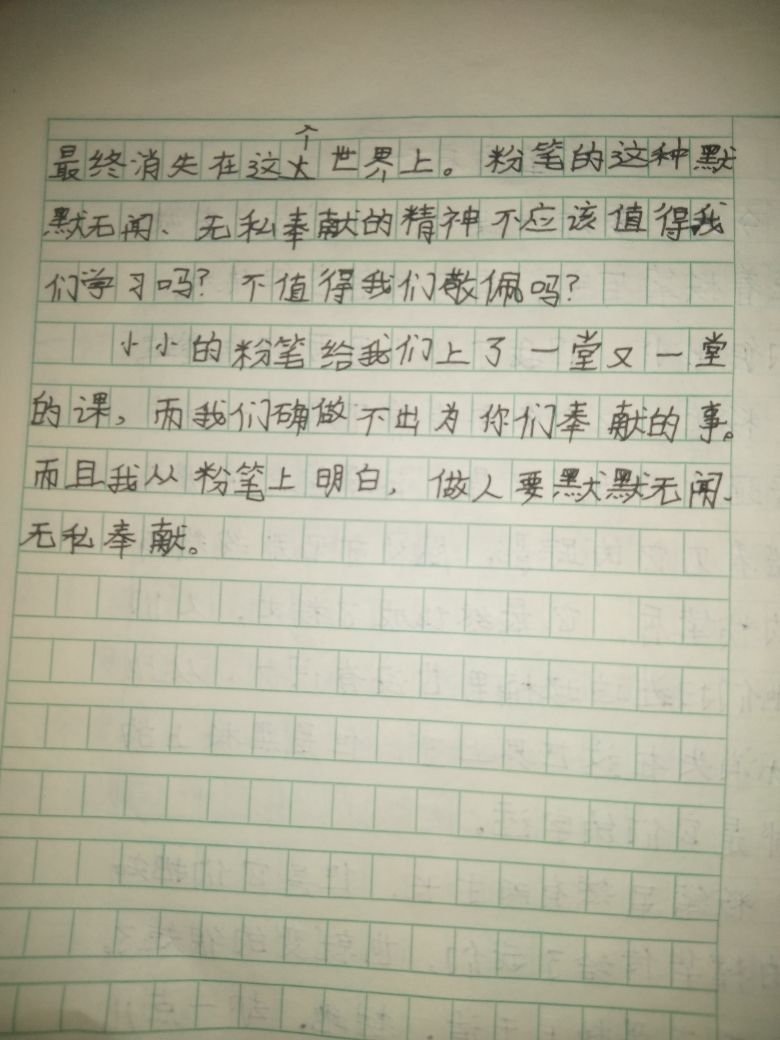 最终消失在这个大世界上。粉笔的这种默
默无闻、无私奉献的精神不应该值得我
们学习吗？不值得我们敬佩吗？
小小的粉笔给我们上了一堂又一堂
的课，而我们确做不出为你们奉献的事。
而且我从粉笔上明白，做人要默默无闻、
无私奉献。